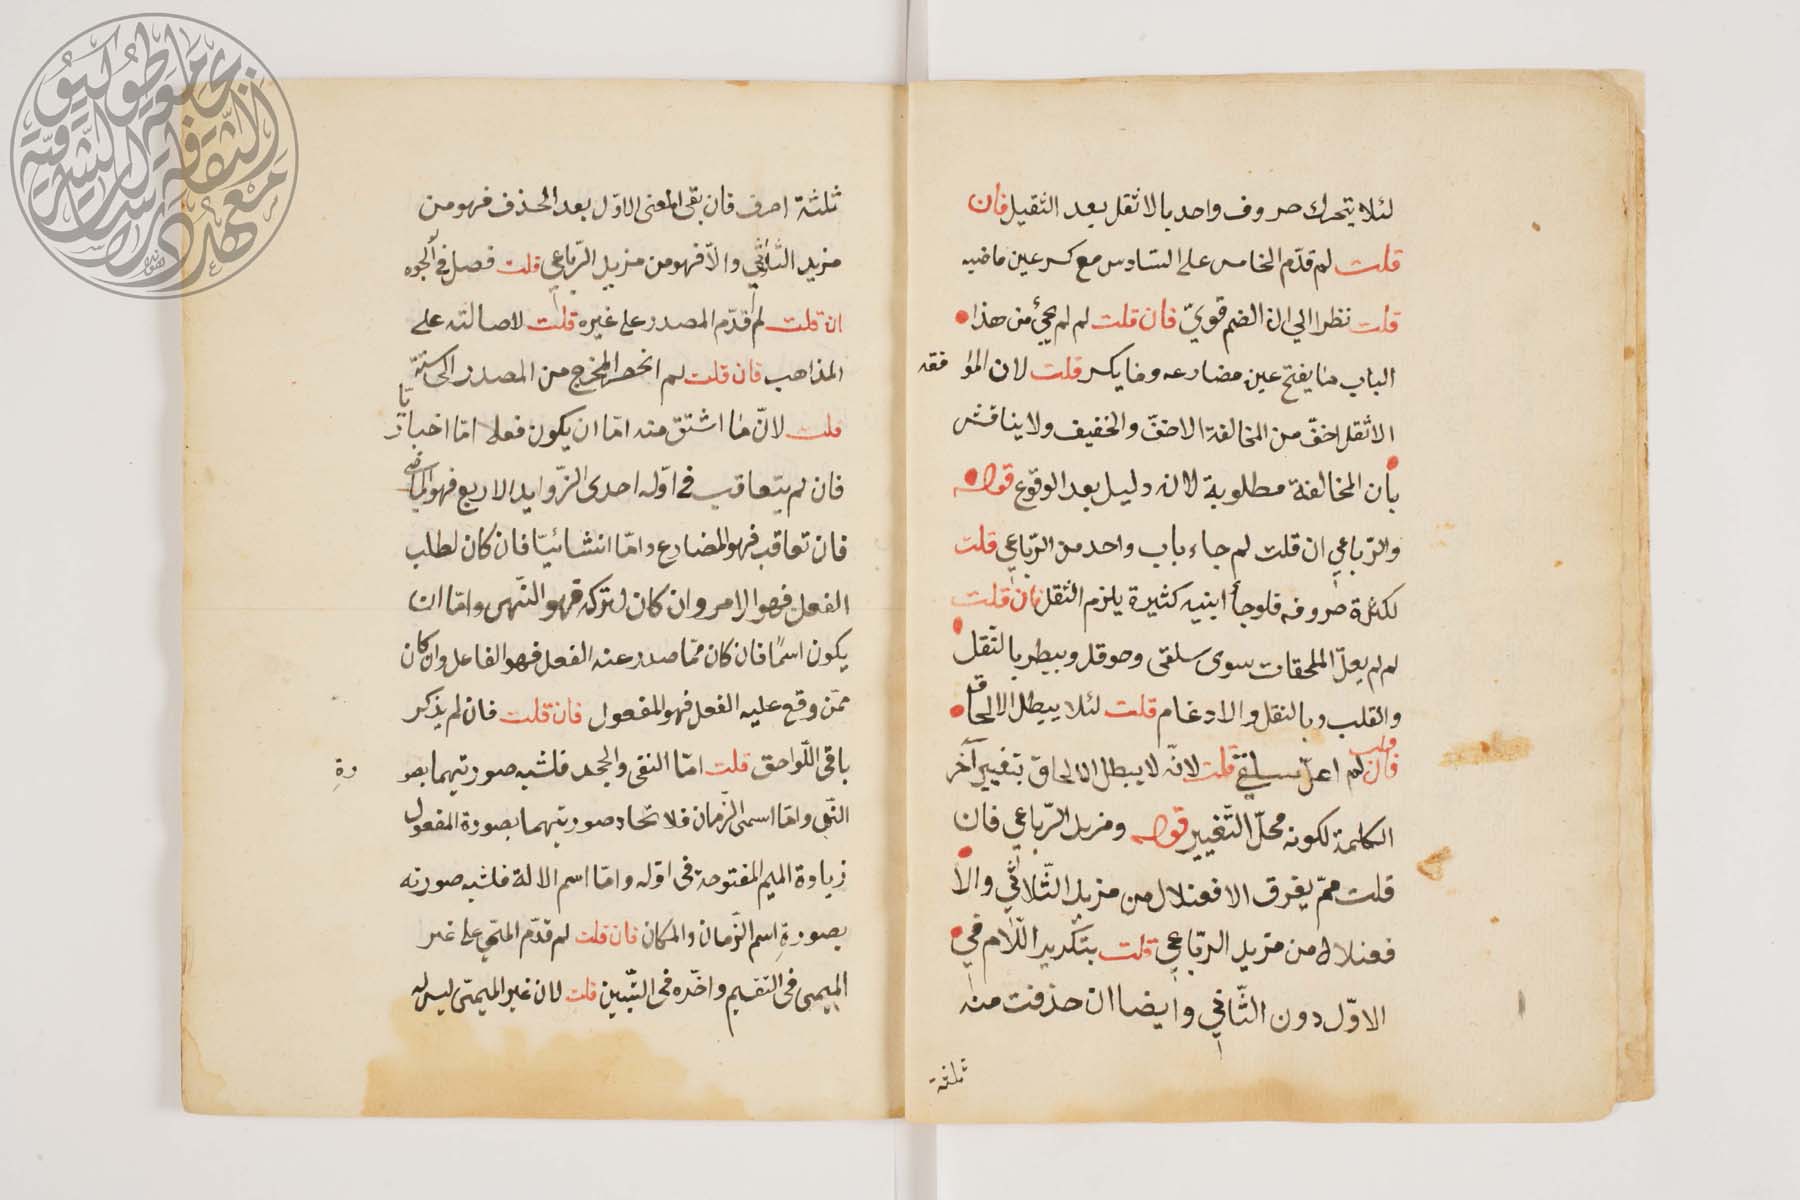 لئلا يتحرك حروف واحد بالاثقل بعد الثقيل فان
قلت لم قدّم الخامس على السّادس مع كسر عين ماضيه
قلت نظرا الي ان الضم قويّ فان قلت لم لم يجئ من هذا
الباب ما يفتح عين مضارعه وما يكسر قلت لان الموافقه
الاثقل اخفّ من المخالفة الاخفّ والخفيف ولا يناقش
بان المخالفة مطلوبة لانه دليل بعد الوقوع قوله
والرّباعي ان قلت لم جاء باب واحد من الرّباعي قلت
لكثرة حروفه فلوجأ ابنيه كثيرة يلزم الثقل فان قلت
لم لم يعلّ الملحقات سوى سلقى وحوقل وبيطر بالنّقل
والقلب وبالنقل والادغام قلت لئلا يبطل الالحاق
فان قلت لم اعلّ سلقى قلت لانّه لا يبطل الالحاق بتغيير آخر
الكلمة لكونه محلّ التّغيير قوله ومزيد الرّباعي فان
قلت ممّ يفرق الافعنلال من مزيد الثّلاثي والا
فعنلال من مزيد الرّباعي قلت بتكرير اللّام في
الاوّل دون الثّاني وايضا ان حذفت منه
ثلثة
ثلثة احرف فان بقى المعنى الاوّل بعد الحذف فهو من
مزيد الثّلاثي والّا فهو من مزيد الرّباعي قلت فصل في الوجوه
ان قلت لم قدّم المصدر على غيره قلت لاصالته على
المذاهب فان قلت لم انحصر المخرج من المصدر الى ستّة
قلت لانّ ما اشتق منه امّا ان يكون فعلا امّا اخباريا
فان لم يتعاقب في اوّله احدى الزّوايد الاربع فهو الماضى
فان تعاقب فهو المضارع وامّا انشائيّا فان كان لطلب
الفعل فهو الامر وان كان لتركه فهو النّهى وامّا ان
يكون اسمًا فان كان ممّا صدر عنه الفعل فهو الفاعل وان كان
ممّن وقع عليه الفعل فهو المفعول فان قلت فان لم يذكر
باقى اللّواحق قلت امّا النفى والجحد فلشبه صورتيهما بصورة
النّهى وامّا اسمى الزّمان فلاتحاد صورتيهما بصورة المفعول
زيادة الميم المفتوحة فى اوّله وامّا اسم الالة فلشبه صورته
بصورة اسم الزّمان والمكان فان قلت لم قدّم الميمي على غير
الميمى فى التّقسيم واخّره فى التّبيين قلت لان غير الميمىّ ليس له